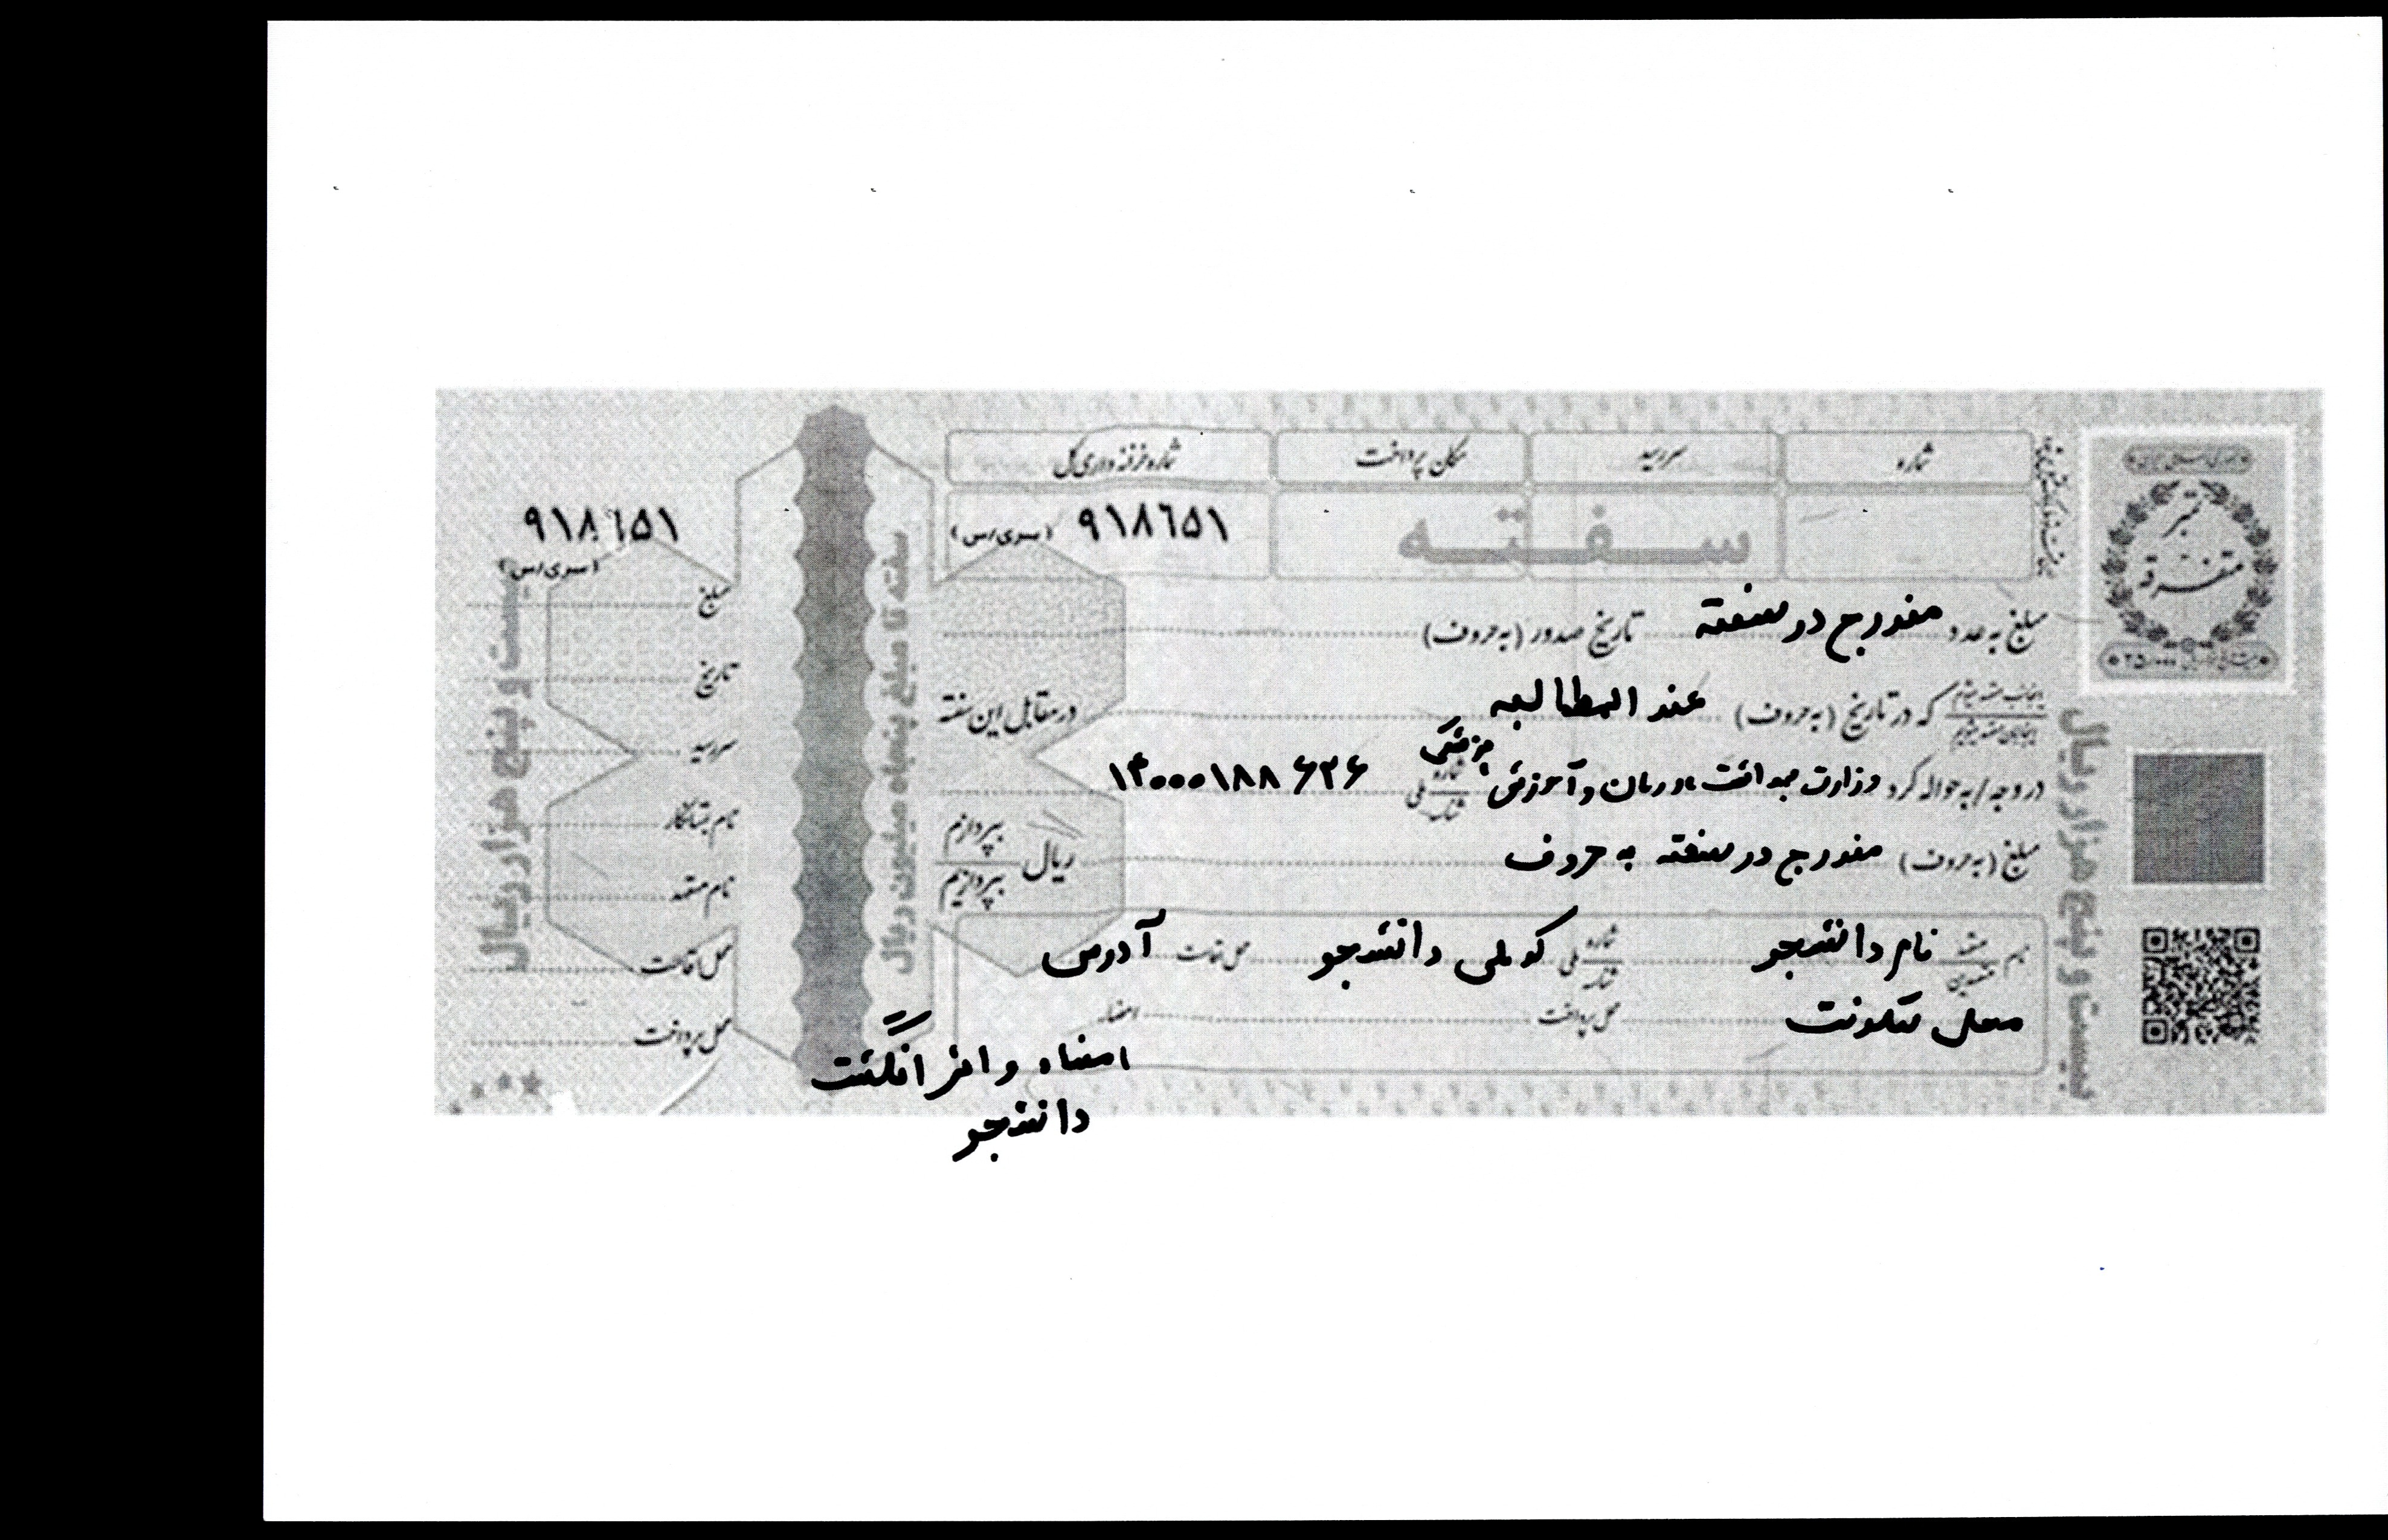 شماره سررسید مکان پرداخت شماره خزانه داری کل
سفته ۹۱۸۶۵۱ (سری/س)
مبلغ به عدد مندرج در سفته تاریخ صدور (به حروف)
که در تاریخ (به حروف) عند المطالبه در مقابل این سفته
در وجه / به حواله کرد وزارت بهداشت، درمان و آموزش پزشکی شماره ملی شناسه ۱۴۰۰۰۱۸۸۶۳۶
مبلغ (به حروف) مندرج در سفته به حروف ریال بپردازم بپردازیم
نام متعهد متعهدین نام دانشجو شماره ملی شناسه کد ملی دانشجو محل اقامت آدرس
محل سکونت محل پرداخت امضاء
امضاء و اثر انگشت
دانشجو
تمبر
متفرقه
بیست و پنج هزار ریال
سفته تا مبلغ پنجاه میلیون ریال
۹۱۸۶۵۱
(سری/س)
مبلغ
تاریخ
سررسید
نام بستانکار
نام متعهد
محل اقامت
محل پرداخت
بیست و پنج هزار ریال